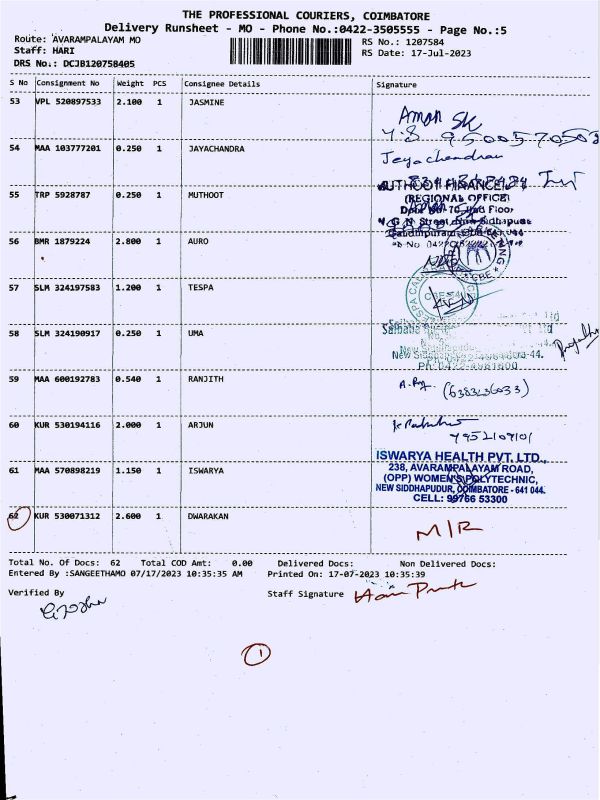 THE PROFESSIONAL COURIERS, COIMBATORE
Delivery Runsheet - MO - Phone No.:0422-3505555 - Page No.:5
Route: AVARAMPALAYAM MO
RS No.: 1207584
Staff: HARI
RS Date: 17-Jul-2023
DRS No.: DCJB120758405
S No Consignment No Weight PCS Consignee Details Signature
53 VPL 520897533 2.100 1 JASMINE
Aman SK
54 MAA 103777201 0.250 1 JAYACHANDRA
Jeyachandran
55 TRP 5928787 0.250 1 MUTHOOT
MUTHOOT FINANCE
(REGIONAL OFFICE)
56 BMR 1879224 2.800 1 AURO
57 SLM 324197583 1.200 1 TESPA
58 SLM 324190917 0.250 1 UMA
59 MAA 600192783 0.540 1 RANJITH
60 KUR 530194116 2.000 1 ARJUN
61 MAA 570898219 1.150 1 ISWARYA
ISWARYA HEALTH PVT. LTD.,
238, AVARAMPALAYAM ROAD,
(OPP) WOMEN'S POLYTECHNIC,
NEW SIDDHAPUDUR, COIMBATORE - 641 044.
CELL: 99766 53300
62 KUR 530071312 2.600 1 DWARAKAN
M/R
Total No. Of Docs: 62 Total COD Amt: 0.00 Delivered Docs: Non Delivered Docs:
Entered By :SANGEETHAMO 07/17/2023 10:35:35 AM Printed On: 17-07-2023 10:35:39
Verified By Staff Signature
1